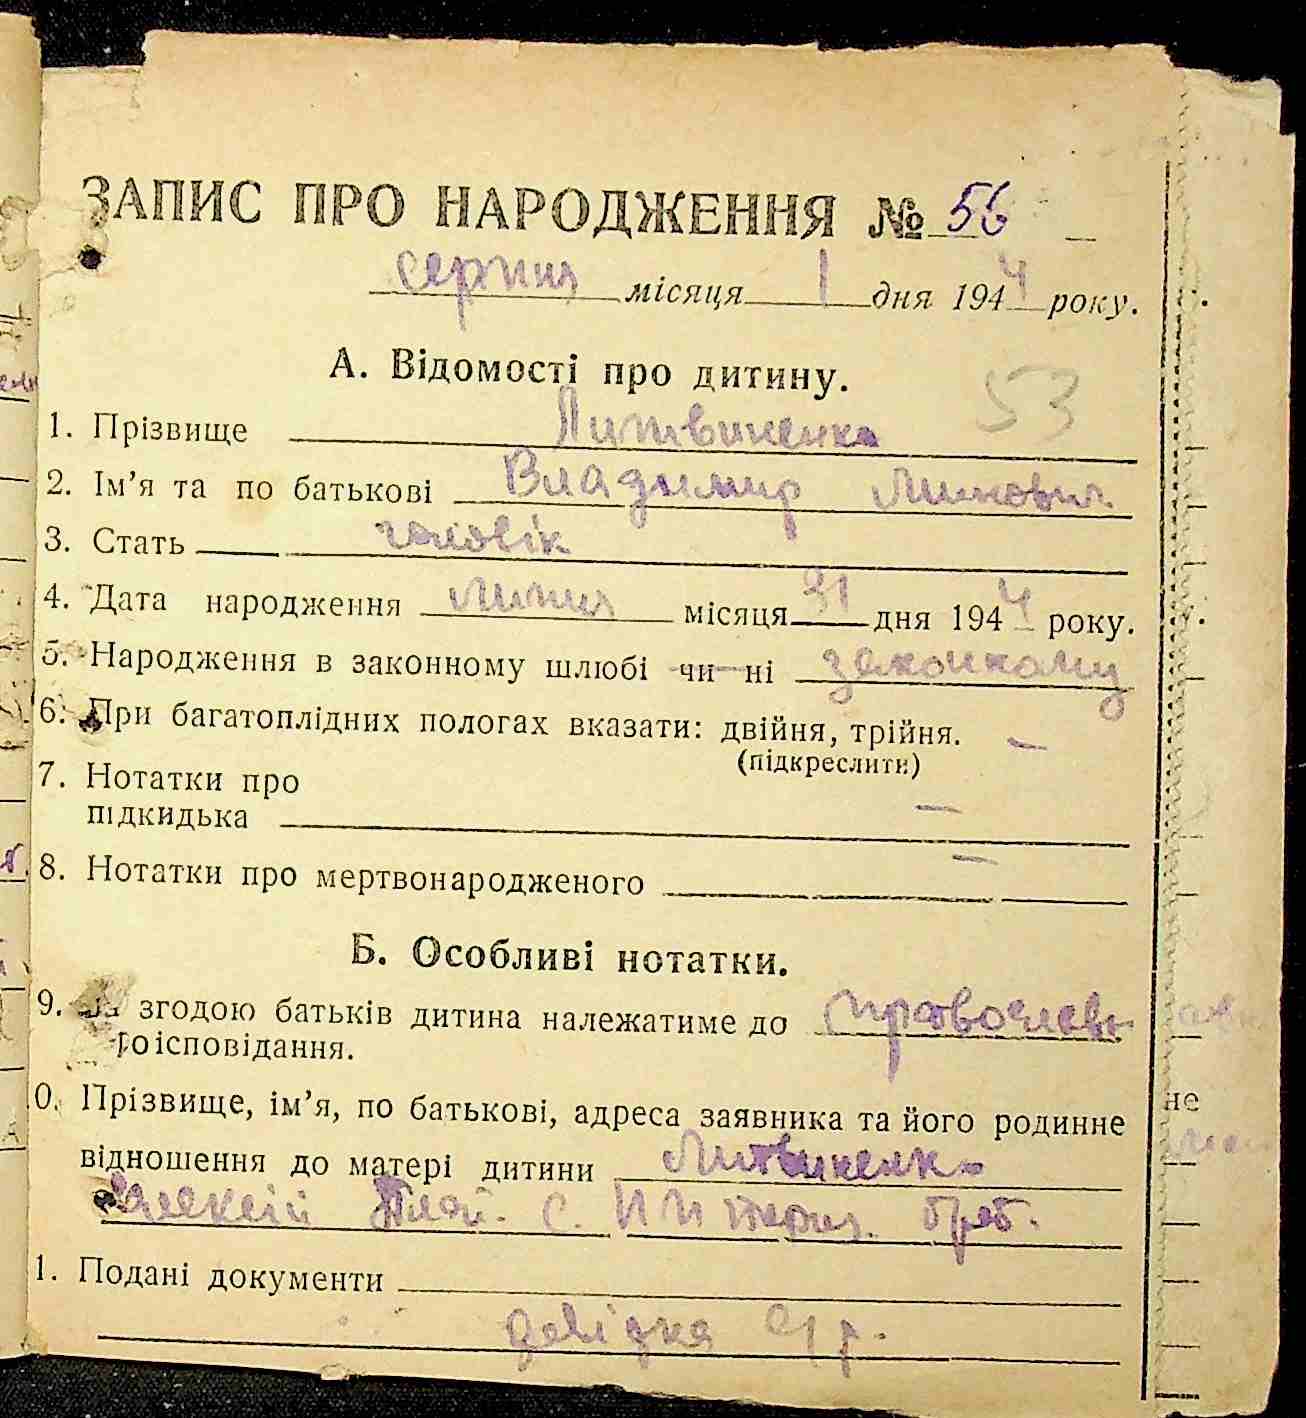 ЗАПИС ПРО НАРОДЖЕННЯ № 56
серпня місяця 1 дня 1944 року.
А. Відомості про дитину.
53
1. Прізвище Литвиненко
2. Ім’я та по батькові Владимир
3. Стать чоловік
4. Дата народження липня місяця 31 дня 1944 року.
5. Народження в законному шлюбі чи ні законному
6. При багатоплідних пологах вказати: двійня, трійня. —
(підкреслити)
7. Нотатки про
підкидька —
8. Нотатки про мертвонародженого —
Б. Особливі нотатки.
9. За згодою батьків дитина належатиме до православн
роісповідання.
0. Прізвище, ім’я, по батькові, адреса заявника та його родинне
відношення до матері дитини Литвиненко
Алексій с.
1. Подані документи
довідка с/р.